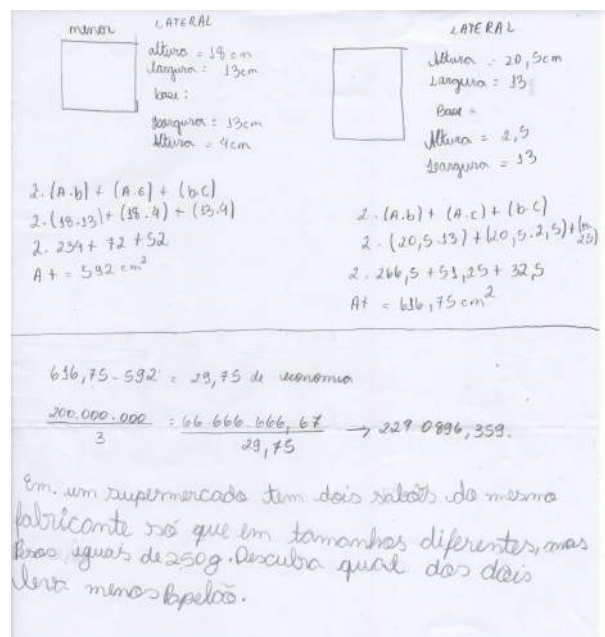 menor
LATERAL
altura = 18 cm
largura = 13cm
base:
largura = 13cm
Altura = 4cm
2.(A.b) + (A.c) + (b.c)
2.(18.13) + (18.4) + (13.4)
2. 234 + 72 + 52
At = 592 cm²
LATERAL
Altura = 20,5cm
Largura = 13
Base =
Altura = 2,5
Largura = 13
2.(A.b) + (A.c) + (b.c)
2.(20,5.13) + (20,5.2,5) +
2. 266,5 + 51,25 + 32,5
At = 616,75 cm²
616,75 - 592 = 29,75 de economia
200.000.000 = 66 666.666, 67 → 229 0896, 359.
3 29,75
Em. um supermercado tem dois sabões do mesmo
fabricante só que em tamanhos diferentes, mas
Pesos iguais de 250g. Descubra qual dos dois
leva menos Papelão.